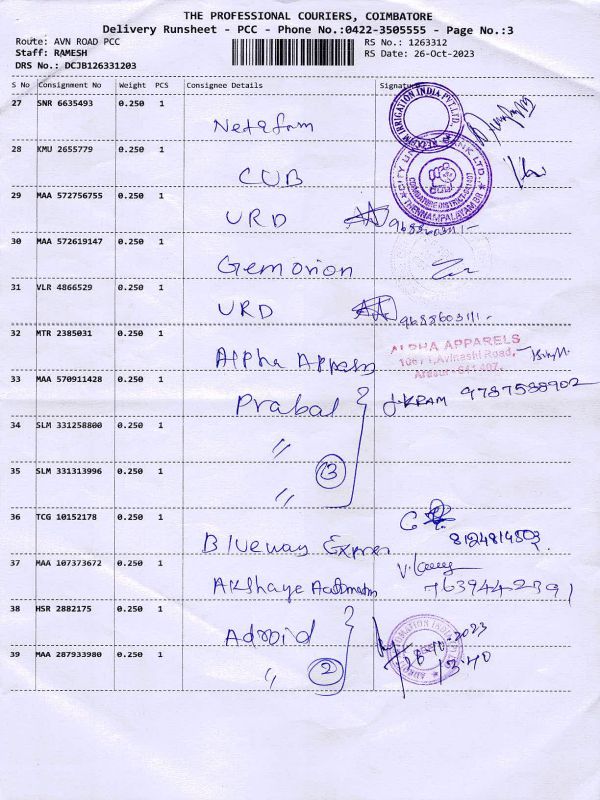 THE PROFESSIONAL COURIERS, COIMBATORE
Delivery Runsheet - PCC - Phone No.:0422-3505555 - Page No.:3
Route: AVN ROAD PCC RS No.: 1263312
Staff: RAMESH RS Date: 26-Oct-2023
DRS No.: DCJB126331203
S No Consignment No Weight PCS Consignee Details Signature
27 SNR 6635493 0.250 1
IRRIGATION INDIA PVT.LTD.
Netafim
28 KMU 2655779 0.250 1
CUB
COIMBATORE DISTRICT-641407
THENNAMPALAYAM BR
29 MAA 572756755 0.250 1
URD
30 MAA 572619147 0.250 1
Gemorion
31 VLR 4866529 0.250 1
URD 9688603111-
32 MTR 2385031 0.250 1
ALPHA APPARELS
Avinashi Road,
Arasur - 641 407.
Alpha
33 MAA 570911428 0.250 1
Prabal J.KPAM 9787588902
34 SLM 331258800 0.250 1
"
35 SLM 331313996 0.250 1
3
"
36 TCG 10152178 0.250 1
Blueway Expres
37 MAA 107373672 0.250 1
Akshaya 7639442391
38 HSR 2882175 0.250 1
Adroid
26-10-2023
13.40
39 MAA 287933980 0.250 1
" 2